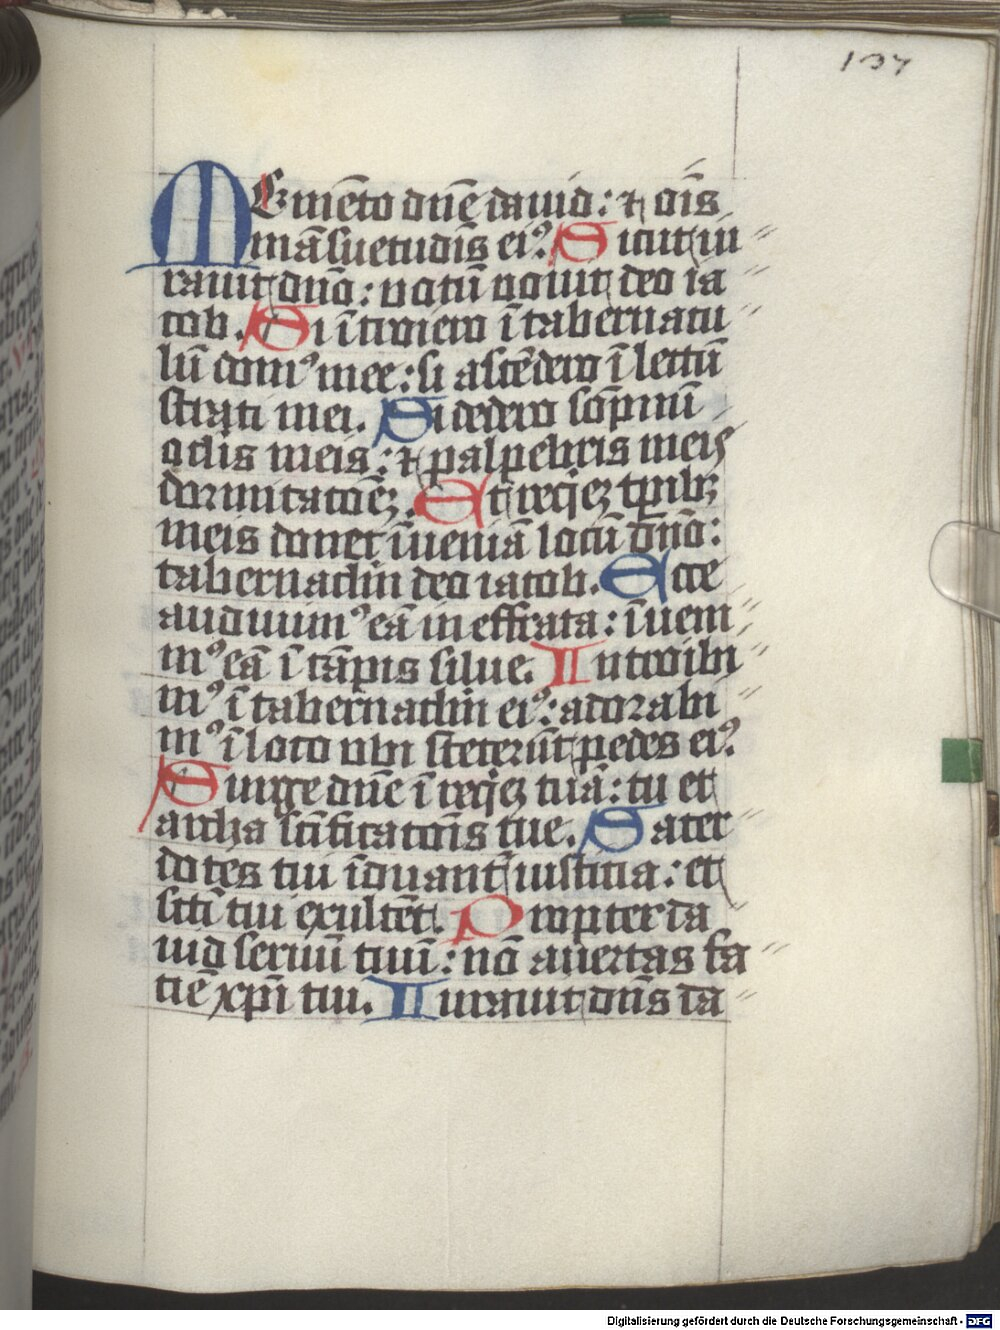 137
MEmēto dn̄e dauid: ⁊ oīs
māsuetudīs eiꝰ. Sicut iu
rauit dn̄o: uotū uouit deo ia
cob. Si ītroiero ī tabernacu
lū domꝰ mee: si ascēdero ī lectū
strati mei. Si dedero sōpnū
oc̄lis meis: ⁊ palpebris meis
dormitatōeꝫ. Et reqͥeꝫ tp̄ibꝫ
meis donec īueniā locū dn̄o:
tabernaclm̄ deo iacob. Ecce
audiuimꝰ eā in effrata: īuem
mꝰ eā ī cāpis silue. Introibi
mꝰ ī tabernaclm̄ eiꝰ: adorabi
mꝰ ī loco ubi steterūt pedes eiꝰ.
Surge dn̄e ī reqͥeꝫ tuā: tu et
archa sc̄ificatōīs tue. Sacer
dotes tui īduant̄ iusticia: et
sc̄i tui exultēt. Propter da
uid seruū tuū: nō auertas fa
ciē xp̄i tui. Iurauit dn̄s da
Digitalisierung gefördert durch die Deutsche Forschungsgemeinschaft - DFG